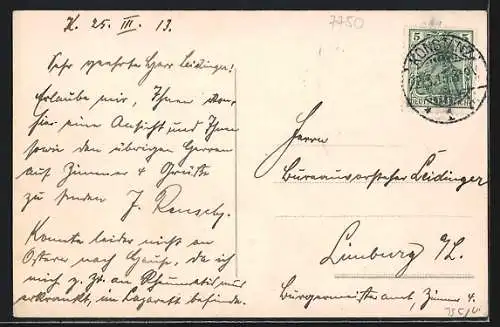 K. 25. III. 13.
7750
Sehr geehrter Herr Leidinger!
Erlaube mir, Ihnen von
hier eine Ansicht und Ihnen
sowie den übrigen Herren
auf Zimmer 4 Grüße
zu senden J. Rensch.
Konnte leider nicht an
Ostern nach Hause, da ich
mich z. Zt. an Rheumatismus
erkrankt, im Lazarett befinde.
5 5
KONSTANZ
DEUTSCHES REICH
Herrn
Bureauvorsteher Leidinger
Limburg a/L.
Bürgermeisteramt, Zimmer 4.